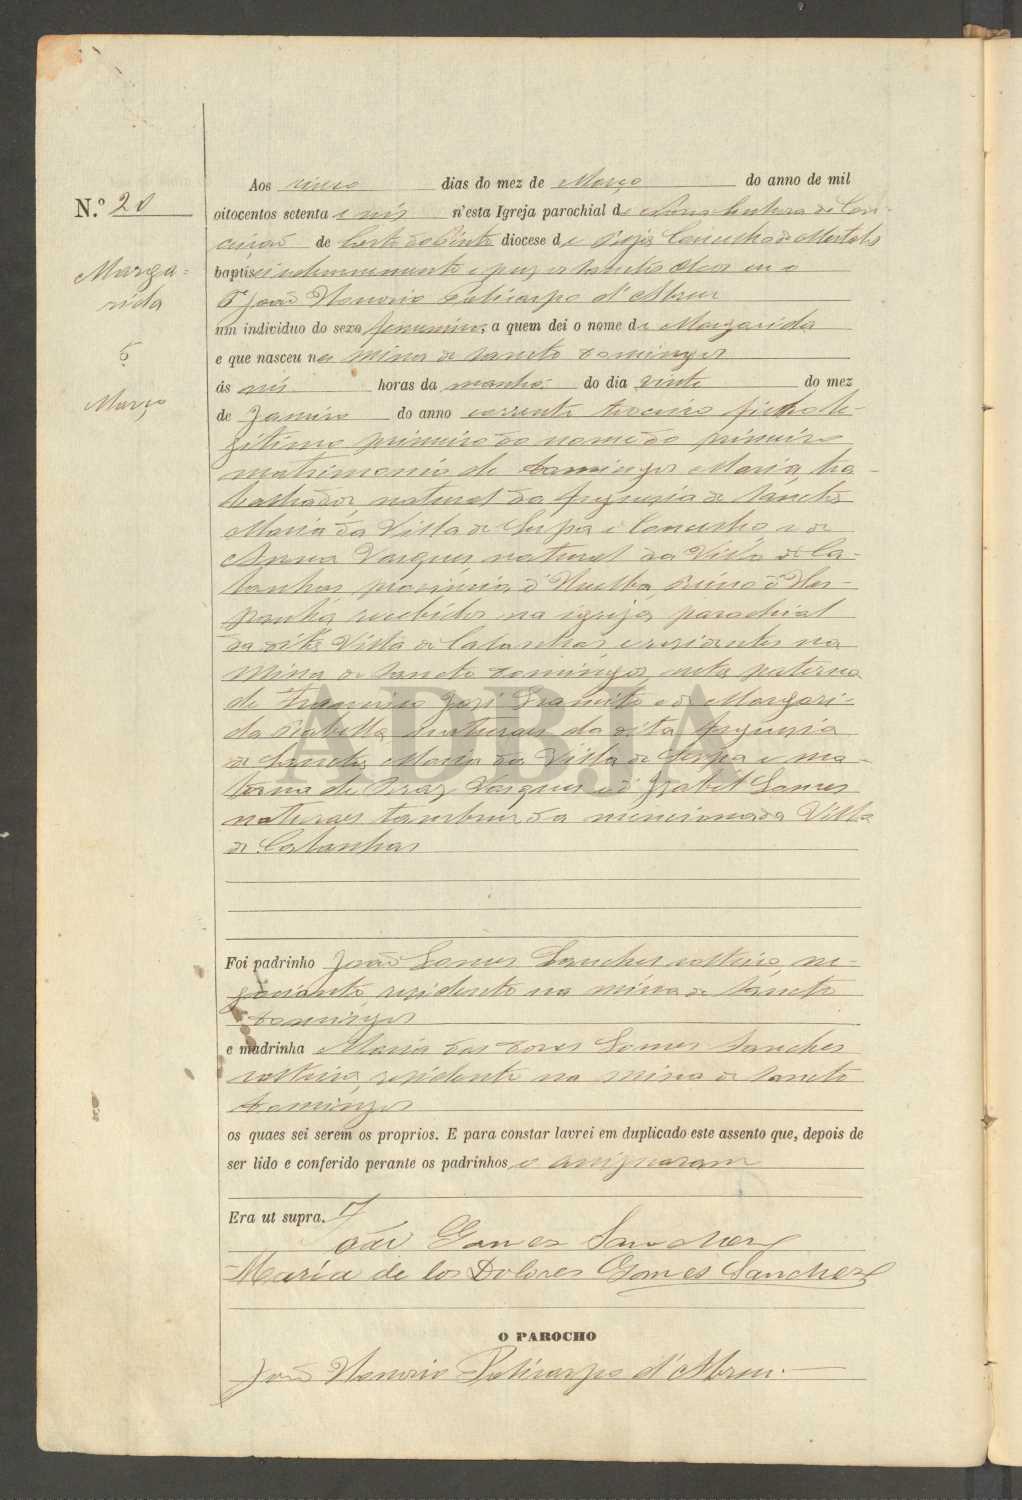 N.º 20
Marga-
rida
5
Março
Aos cinco dias do mez de Março do anno de mil
oitocentos setenta e seis n'esta Igreja parochial de Nossa Senhora da Con-
ceição de diocese de Beja Concelho de Mertola
baptisei solemnemente e puz os sanctos oleos eu o
P.e João Honorio Policarpo d'Abreu
um individuo do sexo femenino, a quem dei o nome de Margarida
e que nasceu na Mina de Sancto Domingos
ás seis horas da manhã do dia vinte do mez
de Janeiro do anno corrente terceiro filho le-
gitimo primeiro do nome do primeiro
matrimonio de Domingos Maria, tra-
balhador, natural da freguesia de Sancta
Maria da Villa de Serpa e Concelho e de
Anna Vasques natural da Villa de Ca-
lanhas, provincia d'Huelba, Reino d'Hes-
panha recebidos na igreja parochial
da dita Villa de Calanhas e residentes na
Mina de Sancto Domingos, neta paterna
de Francisco José e de Margari-
da Isabella, naturaes da dita freguesia
de Sancta Maria da Villa de Serpa e ma-
terna de Braz Vasques e d'Izabel Gomes
naturaes tambem da mencionada Villa
de Calanhas
ADBJA
Foi padrinho João Gomes Sanches solteiro ne-
gociante, residente na mina de Sancto
Domingos
e madrinha Maria das Dores Gomes Sanches
solteira, residente na mina de Sancto
Domingos
os quaes sei serem os proprios. E para constar lavrei em duplicado este assento que, depois de
ser lido e conferido perante os padrinhos o assignaram
Era ut supra.
Gomez Sanchez
Maria de los Dolores Gomes Sanchez
O PAROCHO
João Honorio Policarpo d'Abreu.